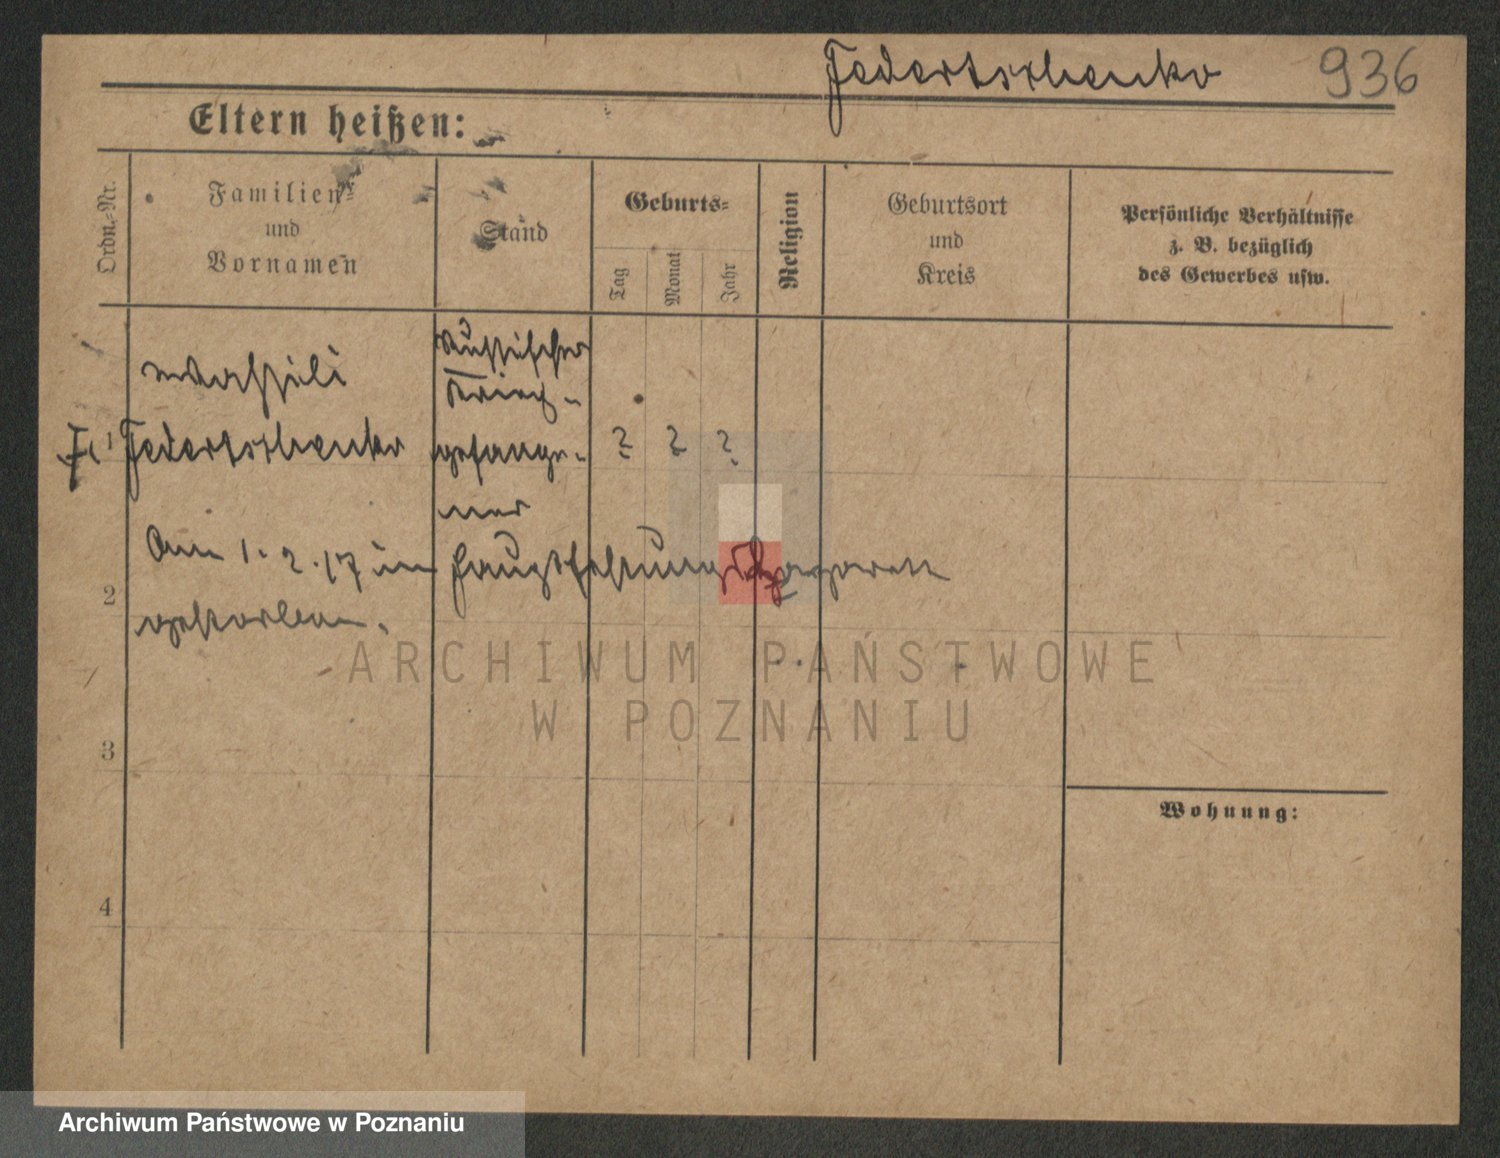 Federtschenko 936
Eltern heißen:
Ordn.-Nr.
Familien-
und
Vornamen
Stand
Geburts-
Tag
Monat
Jahr
Religion
Geburtsort
und
Kreis
Persönliche Verhältnisse
z. B. bezüglich
des Gewerbes usw.
Wassili
Russischer
Krieg-
1 Federtschenko gefange- ? ? ?
ner
Am 1.2.17 im Hauptfestungslazarett
2
gestorben.
ARCHIWUM PAŃSTWOWE
W POZNANIU
3
Wohnung:
4
Archiwum Państwowe w Poznaniu